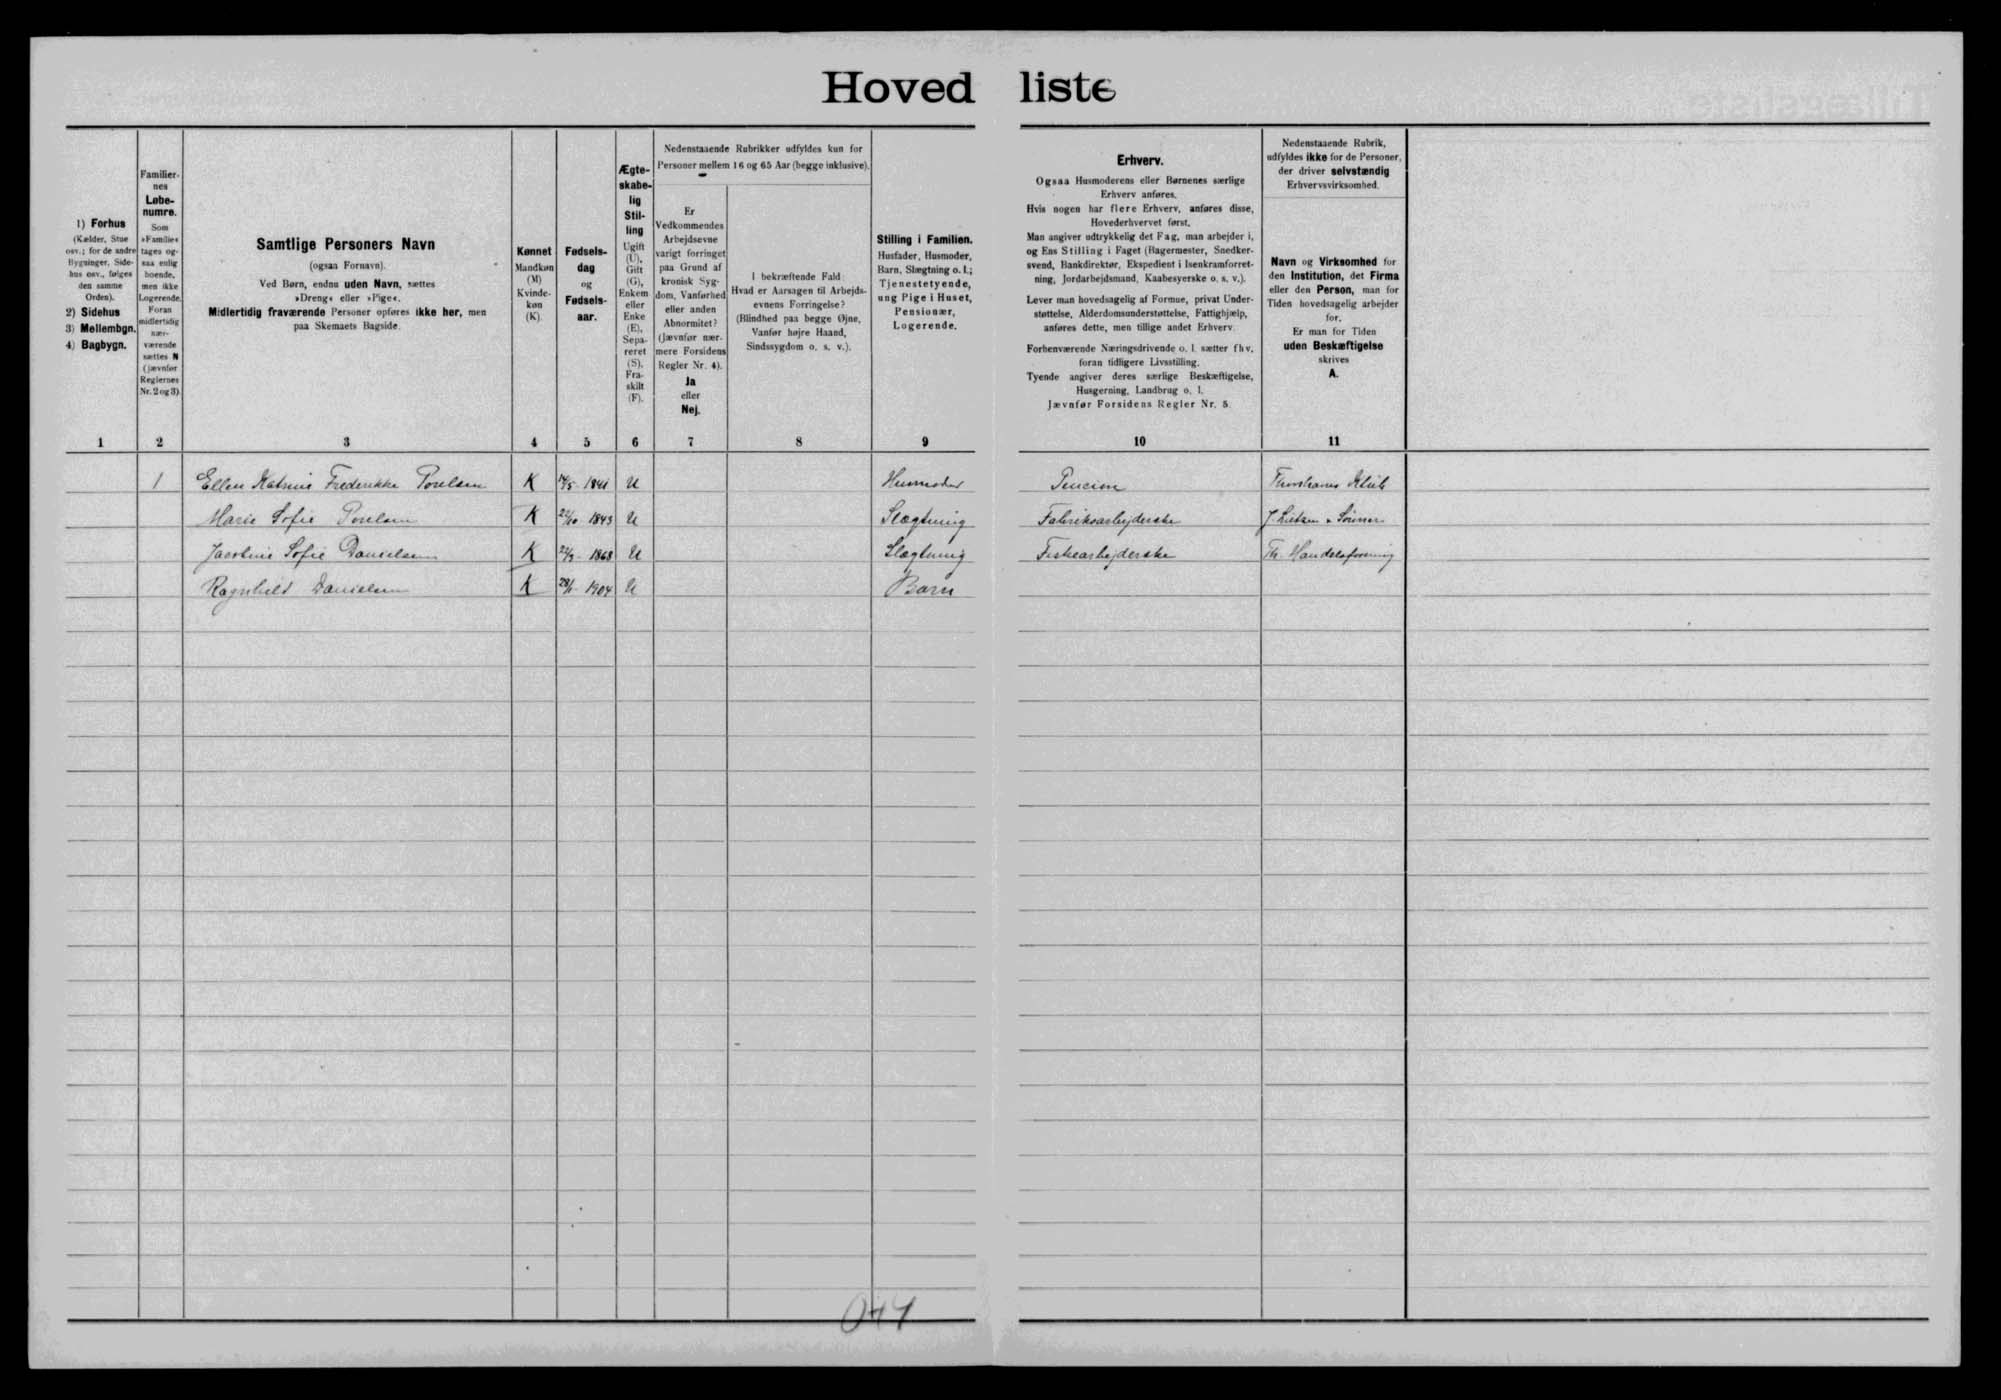 Hovedliste
1) Forhus
(Kælder, Stue
osv.; for de andre
Bygninger, Side-
hus osv., følges
den samme
Orden).
2) Sidehus
3) Mellembgn.
4) Bagbygn.
1
Familier-
nes
Løbe-
numre.
Som
»Familie«
tages og-
saa enlig
boende,
men ikke
Logerende.
Foran
midlertidig
nær-
værende
sættes N
(jævnfør
Reglernes
Nr. 2 og 3).
2
Samtlige Personers Navn
(ogsaa Fornavn).
Ved Børn, endnu uden Navn, sættes
»Dreng« eller »Pige«.
Midlertidig fraværende Personer opføres ikke her, men
paa Skemaets Bagside.
3
Kønnet
Mandkøn
(M)
Kvinde-
køn
(K).
4
Fødsels-
dag
og
Fødsels-
aar.
5
Ægte-
skabe-
lig
Stil-
ling
Ugift
(U),
Gift
(G),
Enkem
eller
Enke
(E),
Sepa-
reret
(S),
Fra-
skilt
(F).
6
Nedenstaaende Rubrikker udfyldes kun for
Personer mellem 16 og 65 Aar (begge inklusive).
Er
Vedkommendes
Arbejdsevne
varigt forringet
paa Grund af
kronisk Syg-
dom, Vanførhed
eller anden
Abnormitet?
(Jævnfør nær-
mere Forsidens
Regler Nr. 4).
Ja
eller
Nej.
7
I bekræftende Fald:
Hvad er Aarsagen til Arbejds-
evnens Forringelse?
(Blindhed paa begge Øjne,
Vanfør højre Haand,
Sindssygdom o. s. v.).
8
Stilling i Familien.
Husfader, Husmoder,
Barn, Slægtning o. l.;
Tjenestetyende,
ung Pige i Huset,
Pensionær,
Logerende.
9
Erhverv.
Ogsaa Husmoderens eller Børnenes særlige
Erhverv anføres.
Hvis nogen har flere Erhverv, anføres disse,
Hovederhvervet først.
Man angiver udtrykkelig det Fag, man arbejder i,
og Ens Stilling i Faget (Bagermester, Snedker-
svend, Bankdirektør, Ekspedient i Isenkramforret-
ning, Jordarbejdsmand, Kaabesyerske o. s. v.).
Lever man hovedsagelig af Formue, privat Under-
støttelse, Alderdomsunderstøttelse, Fattighjælp,
anføres dette, men tillige andet Erhverv.
Forhenværende Næringsdrivende o. l. sætter fhv.
foran tidligere Livsstilling.
Tyende angiver deres særlige Beskæftigelse,
Husgerning, Landbrug o. l.
Jævnfør Forsidens Regler Nr. 5.
10
Nedenstaaende Rubrik,
udfyldes ikke for de Personer,
der driver selvstændig
Erhvervsvirksomhed.
Navn og Virksomhed for
den Institution, det Firma
eller den Person, man for
Tiden hovedsagelig arbejder
for.
Er man for Tiden
uden Beskæftigelse
skrives
A.
11
1 Ellen Katrine Frederikke Poulsen K 1841 U Husmoder Pencion Thorshavns Klub
Marie Sofie Poulsen K 22/10 1843 U Slægtning Fabriksarbejderske Sønner
Jacobine Sofie Danielsen K 1868 U Slægtning Fiskearbejderske Th. Handelsforening
Ragnhild Danielsen K 1904 U Barn